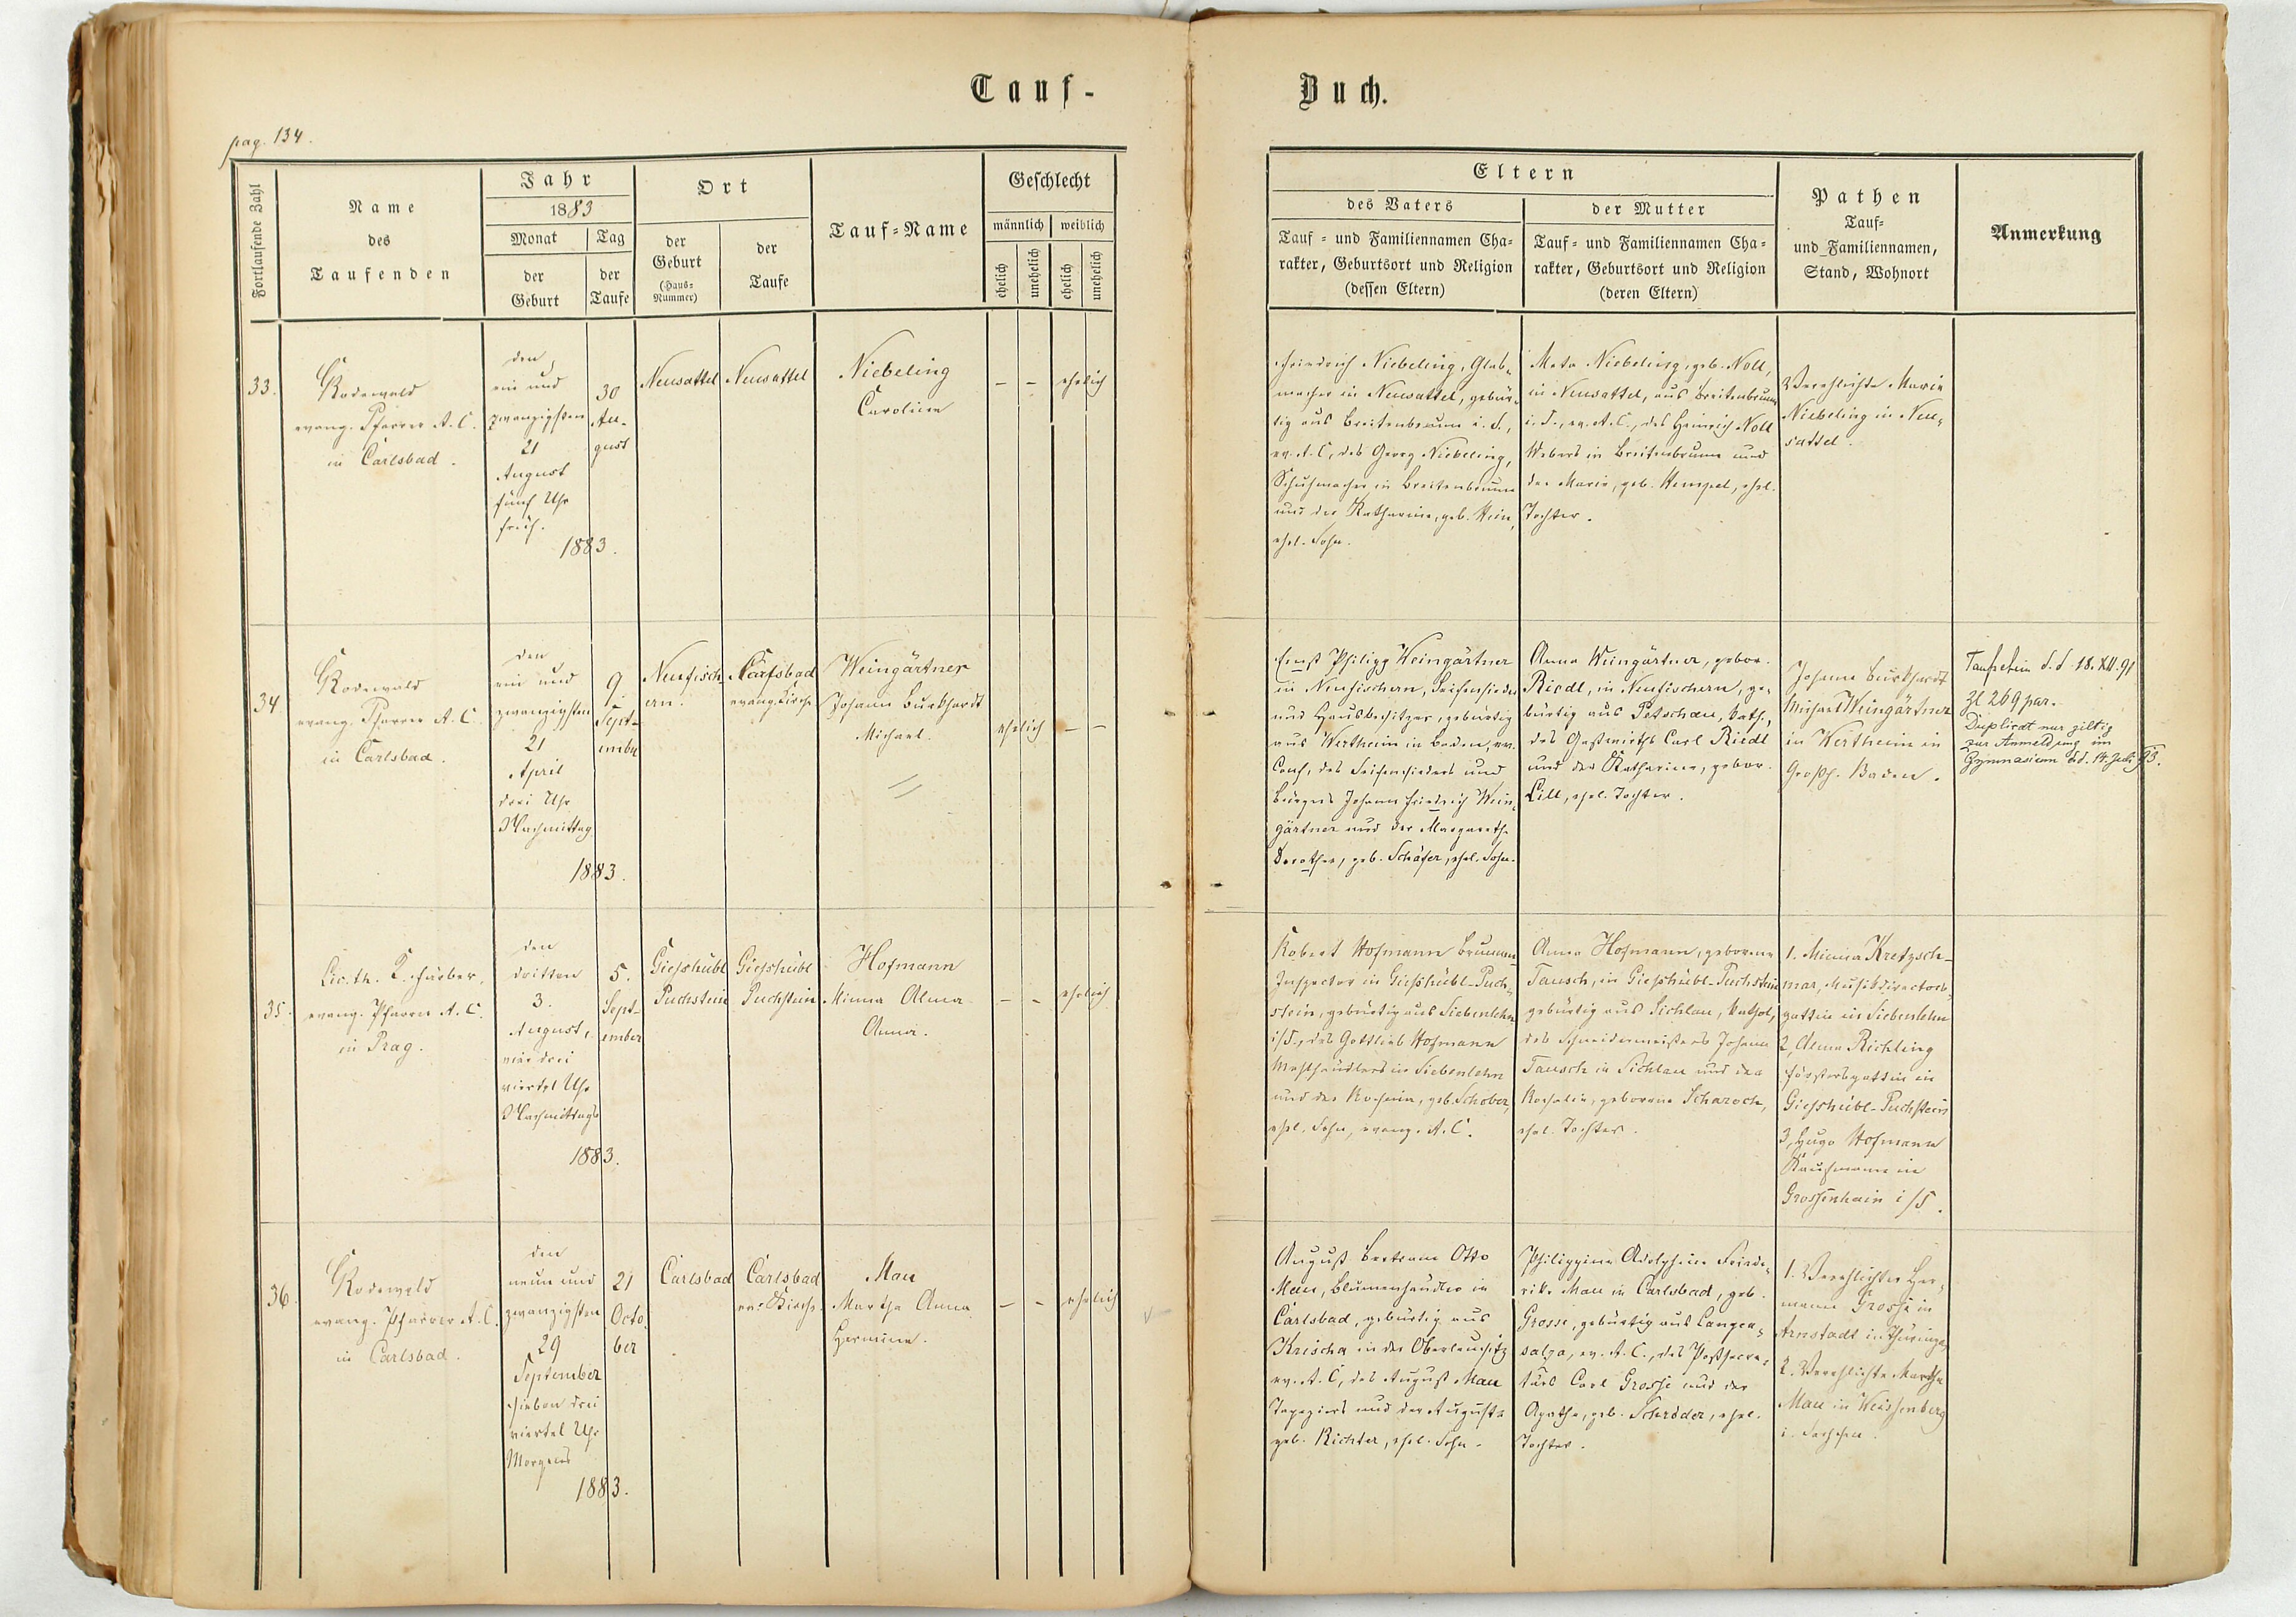 Tauf-
Buch.
pag. 134.
Fortlaufende Zahl
Name
des
Taufenden
Jahr
1883
Monat
Tag
der
Geburt
der
Taufe
Ort
der
Geburt
(Haus-
Nummer)
der
Taufe
Tauf-Name
Geschlecht
männlich
weiblich
ehelich
unehelich
ehelich
unehelich
Eltern
des Vaters
Tauf- und Familiennamen Cha-
rakter, Geburtsort und Religion
(dessen Eltern)
der Mutter
Tauf- und Familiennamen Cha-
rakter, Geburtsort und Religion
(deren Eltern)
Pathen
Tauf-
und Familiennamen,
Stand, Wohnort
Anmerkung
33.
Rodewald
evang. Pfarrer A. C.
in Carlsbad.
den
ein und
zwanzigsten
21
August
fünf Uhr
früh.
1883.
30
Au-
gust
Neusattel
Neusattel
Niebeling
Caroline
– –
ehelich
Friedrich Niebeling, Glas-
macher in Neusattel, gebür-
tig aus Breitenbrunn i. S.,
ev. A. C., des Georg Niebeling,
Schuhmacher in Breitenbrunn
und der Katharina, geb. Hein,
ehel. Sohn.
Meta Niebeling, geb. Noll,
in Neusattel, aus Breitenbrunn
i. S., ev. A. C., des Heinrich Noll
Webers in Breitenbrunn und
der Marie, geb. Hempel, ehel.
Tochter.
Verehlichte Marie
Niebeling in Neu-
sattel.
34
Rodewald
evang. Pfarrer A. C.
in Carlsbad.
den
ein und
zwanzigsten
21
April
drei Uhr
Nachmittag
1883.
9.
Sept-
ember
Neufisch-
ern.
Carlsbad
evang. Kirche
Weingärtner
Johann Burkhardt
Michael.
ehelich
– –
Ernst Philipp Weingärtner
in Neufischern, Seifensieder
und Hausbesitzer, gebürtig
aus Wertheim in Baden, ev.
Conf., des Seifensieders und
Bürgers Johann Friedrich Wein-
gärtner und der Margareth.
Dorothea, geb. Schäfer, ehel. Sohn.
Anna Weingärtner, gebor.
Riedl, in Neufischern, ge-
bürtig aus Petschau, kath.,
des Gastwirths Carl Riedl
und der Katharina, gebor.
Lill, ehel. Tochter.
Johann Burkhardt
Michael Weingärtner
in Wertheim in
Großh. Baden.
Taufschein d. d. 18. XII. 91
Zl 269 par.
Duplicat nur giltig
zur Anmeldung im
Gymnasium d. d. 14. Juli 93.
35.
Lic. th. K. Färber,
evang. Pfarrer A. C.
in Prag.
den
dritten
3.
August,
vier drei
viertel Uhr
Nachmittags
1883.
5.
Sept-
ember
Giesshübl
Puchstein
Giesshübl
Puchstein
Hofmann
Minna Alma
Anna.
– –
ehelich
Robert Hofmann Brunnen-
Inspector in Gießhübl-Puch-
stein, gebürtig aus Siebenlehn
i/S., des Gottlieb Hofmann
Mehlhändlers in Siebenlehn
und der Rosina, geb. Schober,
ehel. Sohn, evang. A. C.
Anna Hofmann, geborene
Tausch, in Giesshübl-Puchstein
gebürtig aus Sichlau, kathol.,
des Schneidermeisters Johann
Tausch in Sichlau und der
Rosalia, geborene Scharoch,
ehel. Tochter.
1. Minna Kretzsch-
mar, Musikdirectors-
gattin in Siebenlehn
2, Alma Richling
Försters­gattin in
Giesshübl-Puchstein
3, Hugo Hofmann
Kaufmann in
Grossenhain i/S.
36.
Rodewald
evang. Pfarrer A. C.
in Carlsbad.
den
neun und
zwanzigsten
29
September
sieben drei
viertel Uhr
Morgens
1883.
21
Octo-
ber
Carlsbad
Carlsbad
ev. Kirche
Mau
Martha Anna
Hermine.
– –
ehelich
August Bertram Otto
Mau, Blumenhändler in
Carlsbad, gebürtig aus
Krischa in der Oberlausitz
ev. A. C., des August Mau
Tapeziers und der Auguste
geb. Richter, ehel. Sohn.
Philippine Adolphine Friede-
rike Mau in Carlsbad, geb.
Grosse, gebürtig aus Langen-
salza, ev. A. C., des Postsecre-
tärs Carl Grosse und der
Agathe, geb. Schröder, ehel.
Tochter.
1. Verehlichter Her-
mann Grosse in
Arnstadt i. Thüringen
2. Verehlichte Martha
Mau in Weissenberg
i. Sachsen.